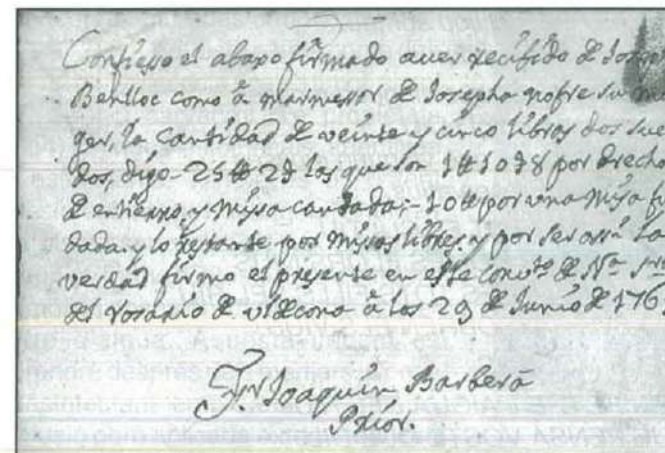 Confiesso el abaxo firmado aver recibido de Josep
Benlloc como â marmessor de Josepha nofre su mu
ger, la cantidad de veinte y cinco libras dos suel
dos, digo - 25 ℔ 2 s las que son 1 ℔ 10 s 8 por drecho
de entierro, y Missa cantada; - 10 ℔ por una Missa fun
dada. y lo restante por Missas libres. y por ser assi la
verdad firmo el presente en este convto de Nra Sra
del Rosario de Uldecona â los 29 de Junio de 176
Fr. Joaquin Barberâ
Prior.